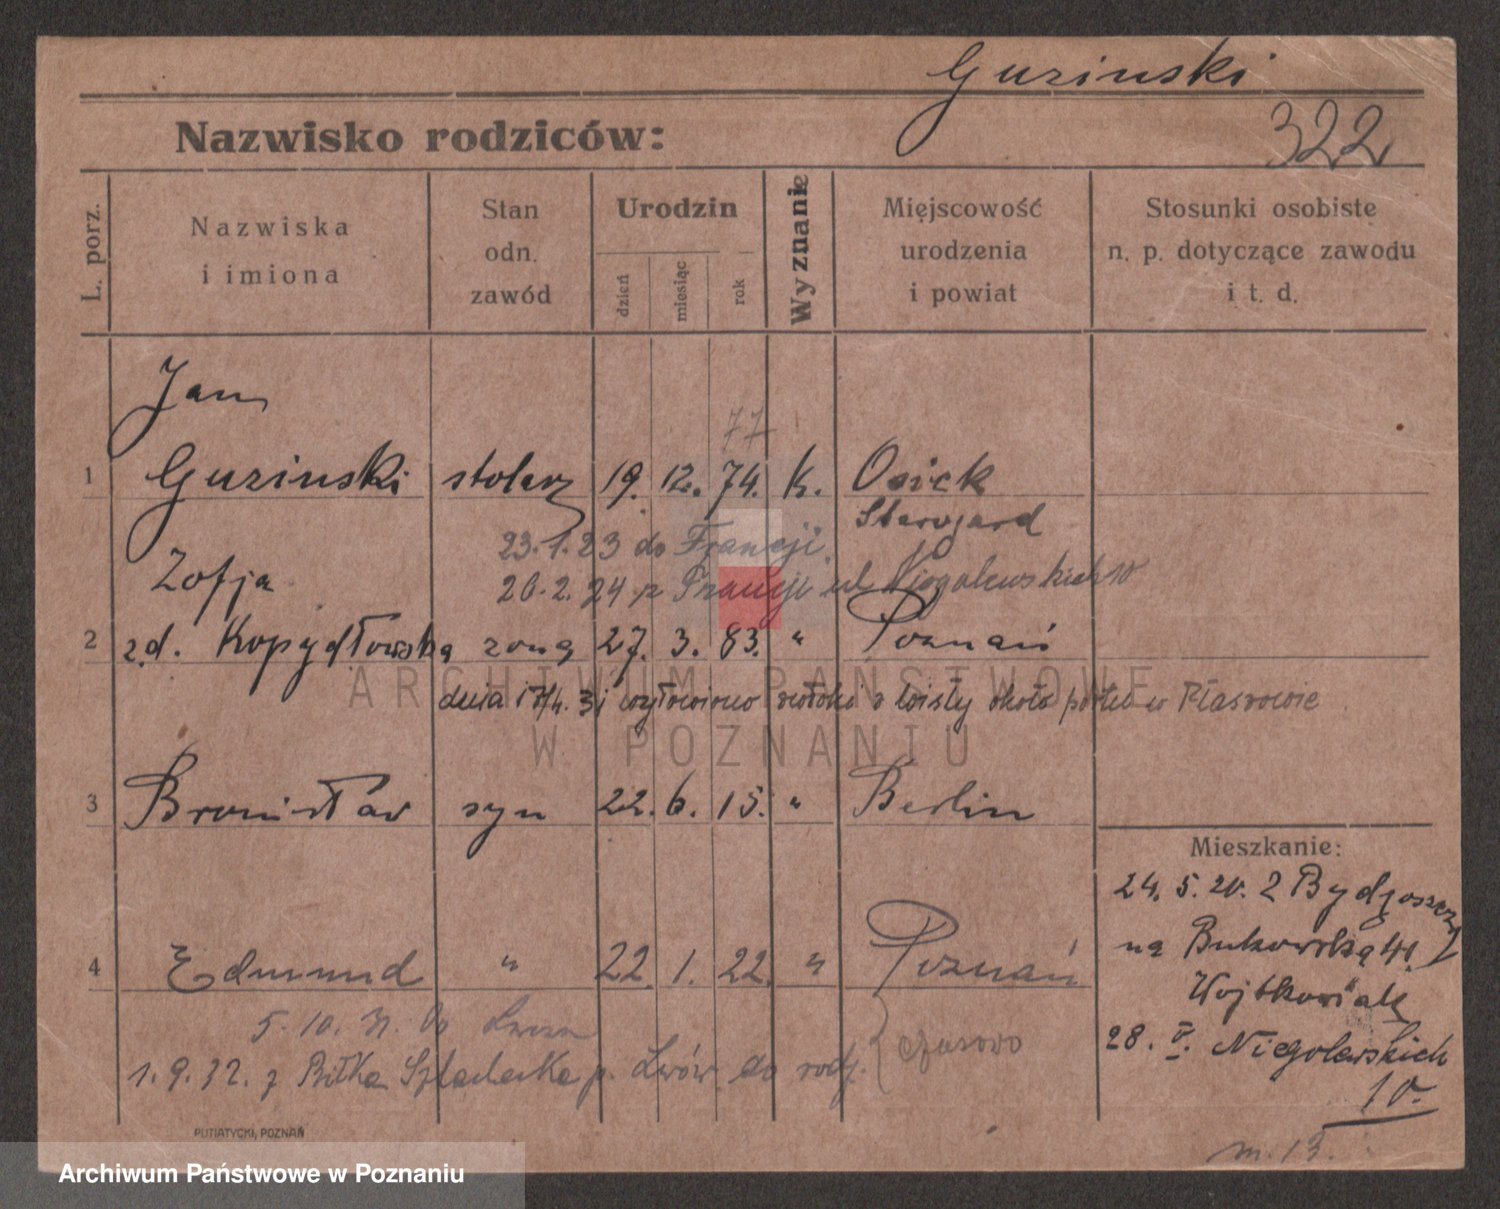 Guziński
322
Nazwisko rodziców:
L. porz.
Nazwiska
i imiona
Stan
odn.
zawód
Urodzin
dzień
miesiąc
rok
Wyznanie
Miejscowość
urodzenia
i powiat
Stosunki osobiste
n. p. dotyczące zawodu
i t. d.
Jan
77
1 Guzinski stolarz 19. 12. 74. k. Osiek
Starogard
23.1.23 do Francji.
Zofja 20.2.24 z Francji ul Niegolewskich 10
2 z.d. Kopydłowska żona 27. 3. 83. " Poznań
dnia 17/4. 31 wyłowiono zwłoki z Wisły około portu w Płaszowie
3 Bronisław syn 22. 6. 15. " Berlin
Mieszkanie:
24. 5. 20. z Bydgoszcz
na Bukowską 41.
Wojtkowiak
4 Edmund " 22. 1. 22. " Poznań
28. V. Niegolewskich
10.
5.10.31. do Lwowa
1.9.32. z Biłka Szlachecka p. Lwów do rodz. czasowo
m. 13.
PUTIATYCKI, POZNAŃ
ARCHIWUM PAŃSTWOWE
W POZNANIU
Archiwum Państwowe w Poznaniu